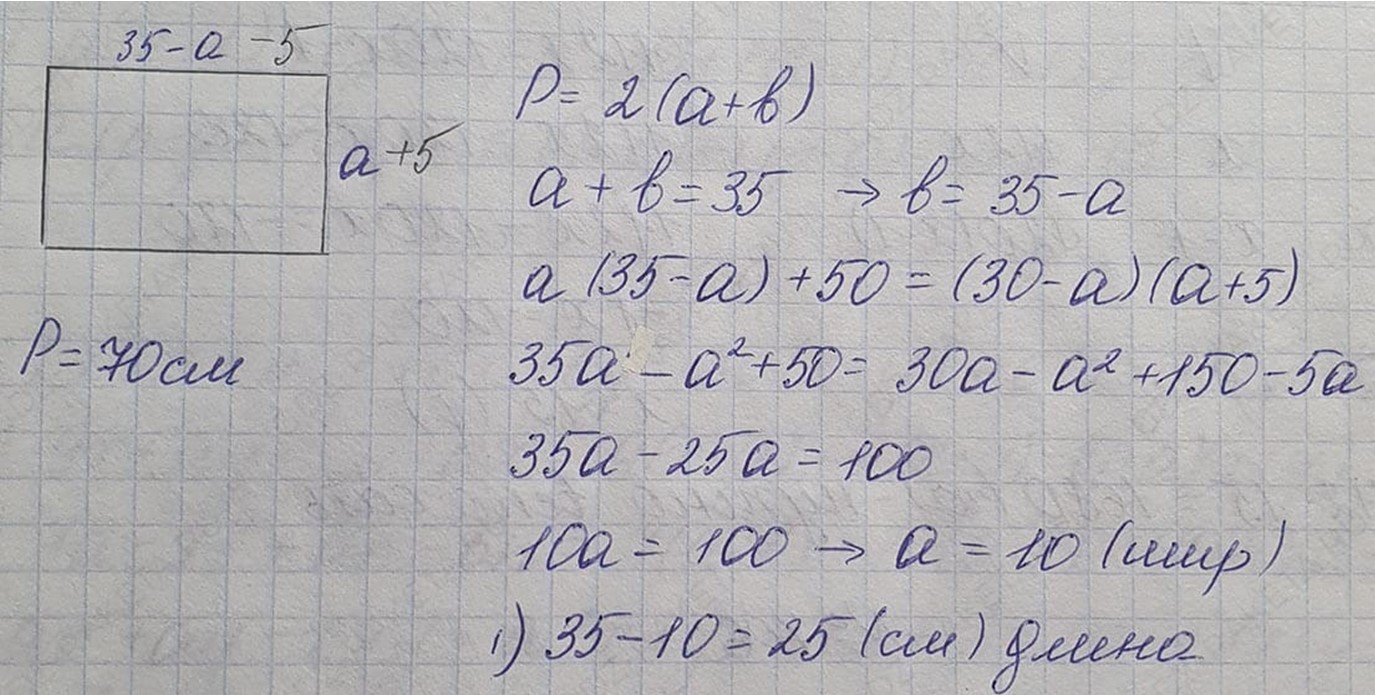 35-a -5
a +5
P= 70см
P= 2(a+b)
a + b = 35 → b = 35-a
a (35-a) +50 = (30-a)(a+5)
35a - a² +50= 30a - a² +150-5a
35a - 25a = 100
10a = 100 → a = 10 (шир)
1) 35-10=25 (см) длина